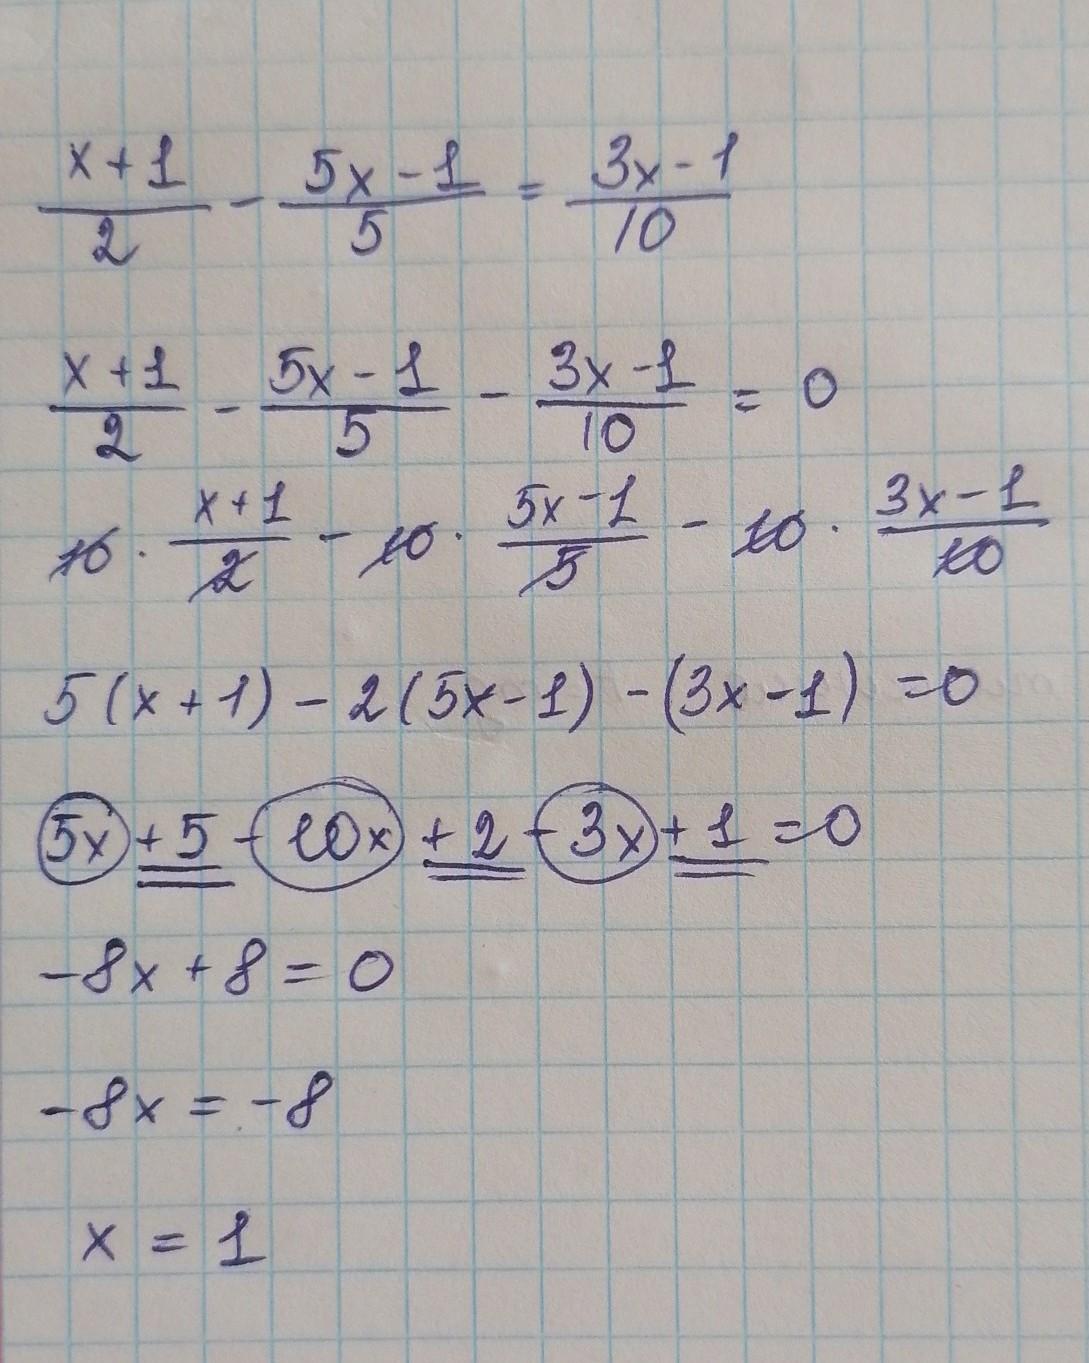 (x+1)/2 - (5x-1)/5 = (3x-1)/10
(x+1)/2 - (5x-1)/5 - (3x-1)/10 = 0
10 · (x+1)/2 - 10 · (5x-1)/5 - 10 · (3x-1)/10
5(x+1) - 2(5x-1) - (3x-1) = 0
5x + 5 - 10x + 2 - 3x + 1 = 0
-8x + 8 = 0
-8x = -8
x = 1